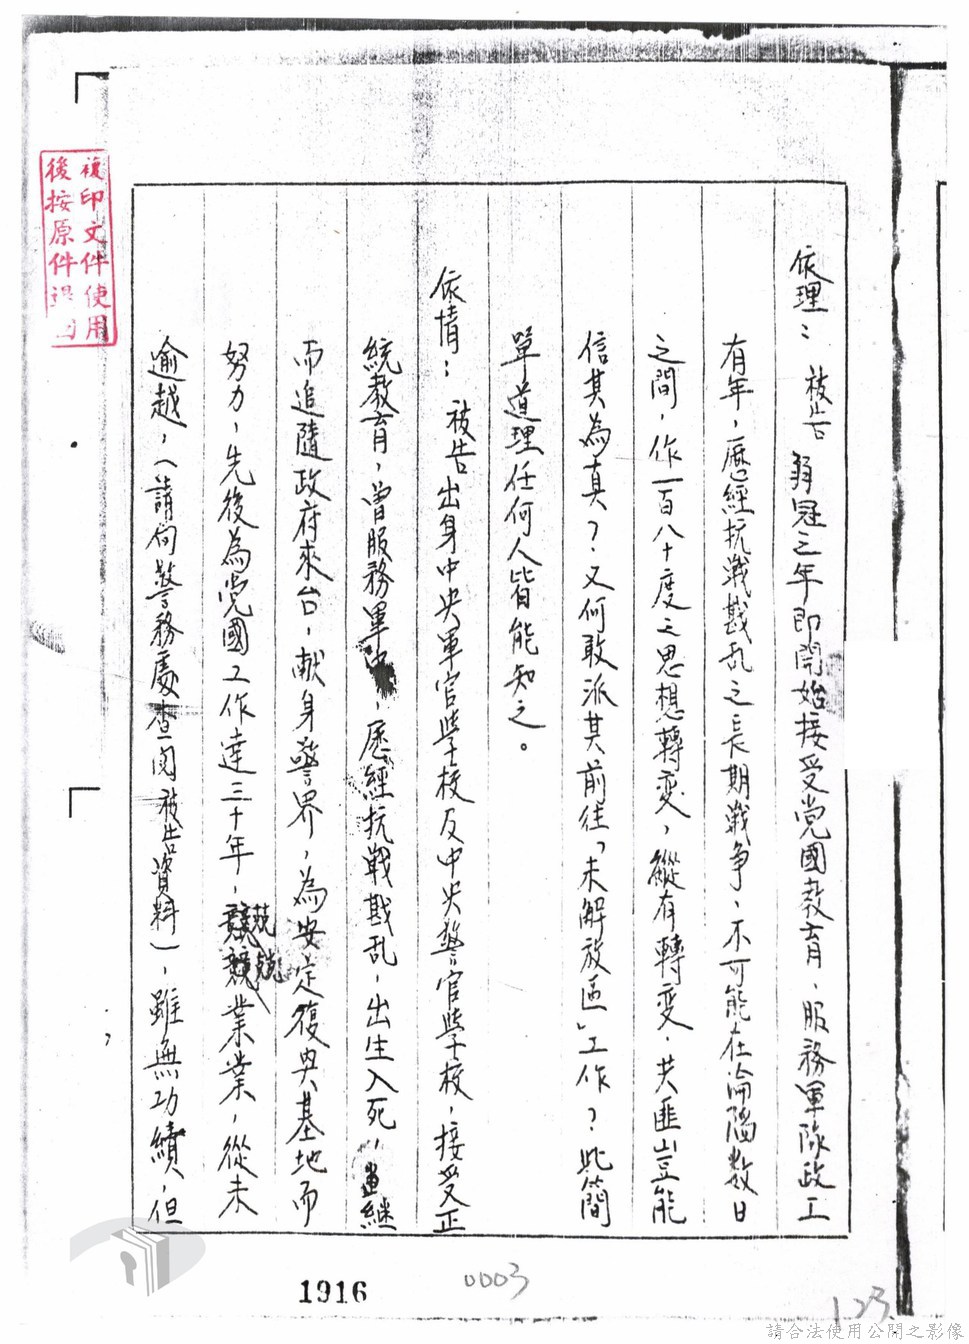 依理：被告弱冠之年即開始接受党國教育，服務軍隊政工
有年，歷經抗戰戡乱之長期戰争，不可能在淪陷数日
之間，作一百八十度之思想轉变，縱有轉变，共匪豈能
信其為真？又何敢派其前往「未解放區」工作？此簡
單道理任何人皆能知之。
依情：被告出身中央軍官學校及中央警官學校，接受正
統教育，曾服務軍中，歷經抗戰戡乱，出生入死，繼
而追隨政府來台，献身警界，為安定復興基地而
努力，先後為党國工作達三十年，兢兢業業，從未
逾越，（請向警務處查閱被告資料），雖無功績，但
複印文件使用
後按原件退回
1916
0003
123
請合法使用公開之影像